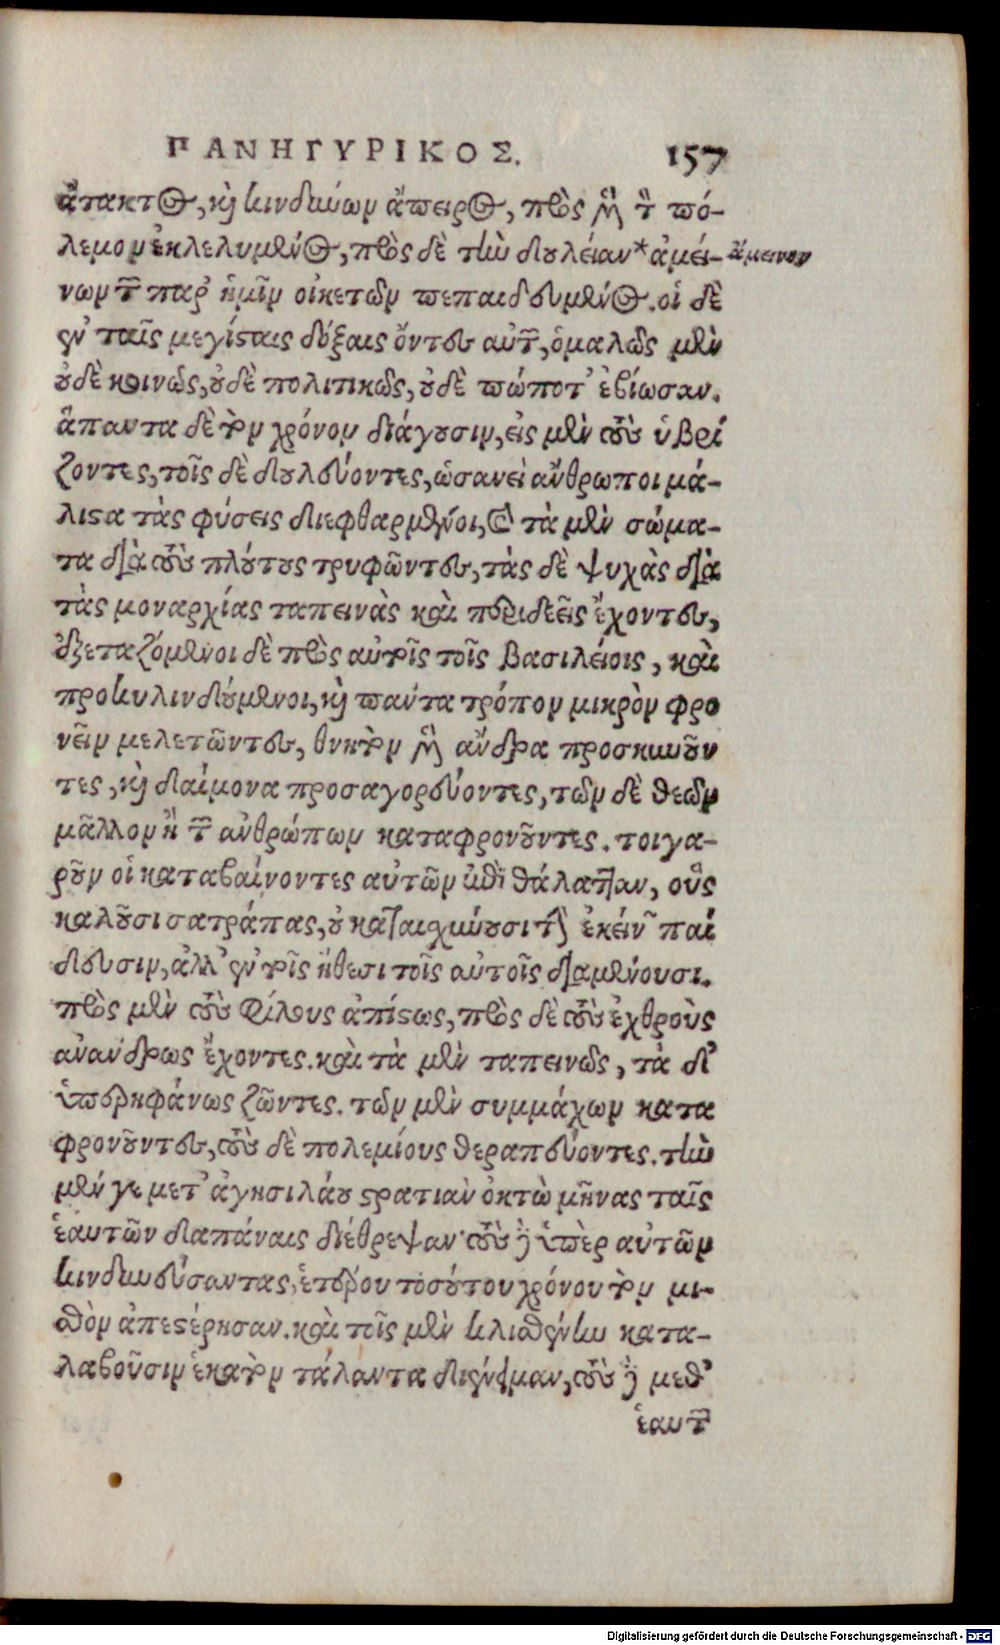 ΠΑΝΗΓΥΡΙΚΟΣ. 157
ἄτακτος, καὶ κινδύνων ἄπειρος, πρὸς μὲν τὸν πό-
λεμον ἐκλελυμένος, πρὸς δὲ τὴν δουλείαν* ἀμεί- ἄμεινον
νων τῶν παρ' ἡμῖν οἰκετῶν πεπαιδευμένος. οἱ δὲ
ἐν ταῖς μεγίσταις δόξαις ὄντες αὐτῶν, ὁμαλῶς μὲν
οὐδὲ κοινῶς, οὐδὲ πολιτικῶς, οὐδὲ πώποτ' ἐβίωσαν.
ἅπαντα δὲ τὸν χρόνον διάγουσιν, εἰς μὲν τοὺς ὑβρί
ζοντες, τοῖς δὲ δουλεύοντες, ὡσανεὶ ἄνθρωποι μά-
λιστα τὰς φύσεις διεφθαρμένοι, καὶ τὰ μὲν σώμα-
τα διὰ τοὺς πλούτους τρυφῶντες, τὰς δὲ ψυχὰς διὰ
τὰς μοναρχίας ταπεινὰς καὶ περιδεεῖς ἔχοντες,
ἐξεταζόμενοι δὲ πρὸς αὐτοῖς τοῖς βασιλείοις, καὶ
προκυλινδούμενοι, καὶ πάντα τρόπον μικρὸν φρο
νεῖν μελετῶντες, θνητὸν μὲν ἄνδρα προσκυνοῦν
τες, καὶ δαίμονα προσαγορεύοντες, τῶν δὲ θεῶν
μᾶλλον ἢ τῶν ἀνθρώπων καταφρονοῦντες. τοιγα-
ροῦν οἱ καταβαίνοντες αὐτῶν ἐπὶ θάλατταν, οὓς
καλοῦσι σατράπας, οὐ καταισχύνουσι τὴν ἐκείνων παί
δευσιν, ἀλλ' ἐν τοῖς ἤθεσι τοῖς αὐτοῖς διαμένουσι.
πρὸς μὲν τοὺς φίλους ἀπίστως, πρὸς δὲ τοὺς ἐχθροὺς
ἀνάνδρως ἔχοντες. καὶ τὰ μὲν ταπεινῶς, τὰ δ'
ὑπερηφάνως ζῶντες. τῶν μὲν συμμάχων κατα
φρονοῦντες, τοὺς δὲ πολεμίους θεραπεύοντες. τὴν
μέν γε μετ' ἀγησιλάου στρατιὰν ὀκτὼ μῆνας ταῖς
ἑαυτῶν δαπάναις διέθρεψαν· τοὺς δ' ὑπὲρ αὐτῶν
κινδυνεύσαντας, ἑτέρου τοσούτου χρόνου τὸν μι-
σθὸν ἀπεστέρησαν. καὶ τοῖς μὲν κισθήνην κατα-
λαβοῦσιν ἑκατὸν τάλαντα διένειμαν, τοὺς δὲ μεθ'
ἑαυτῶν
Digitalisierung gefördert durch die Deutsche Forschungsgemeinschaft - DFG